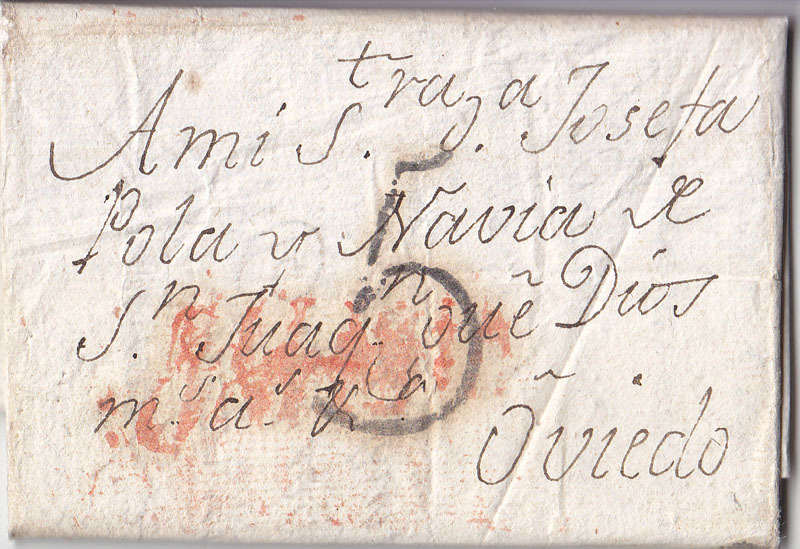 A mi S.ᵗʳᵃ D.ᵃ Josefa
Pola y Navia de
S.ⁿ Juaq.ⁿ que Dios
m.ˢ a.ˢ &.ᵃ
5
Oviedo